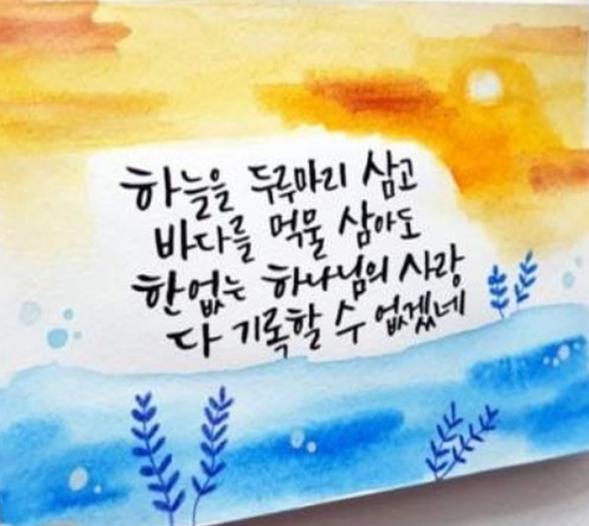 하늘을 두루마리 삼고
바다를 먹물 삼아도
한없는 하나님의 사랑
다 기록할 수 없겠네